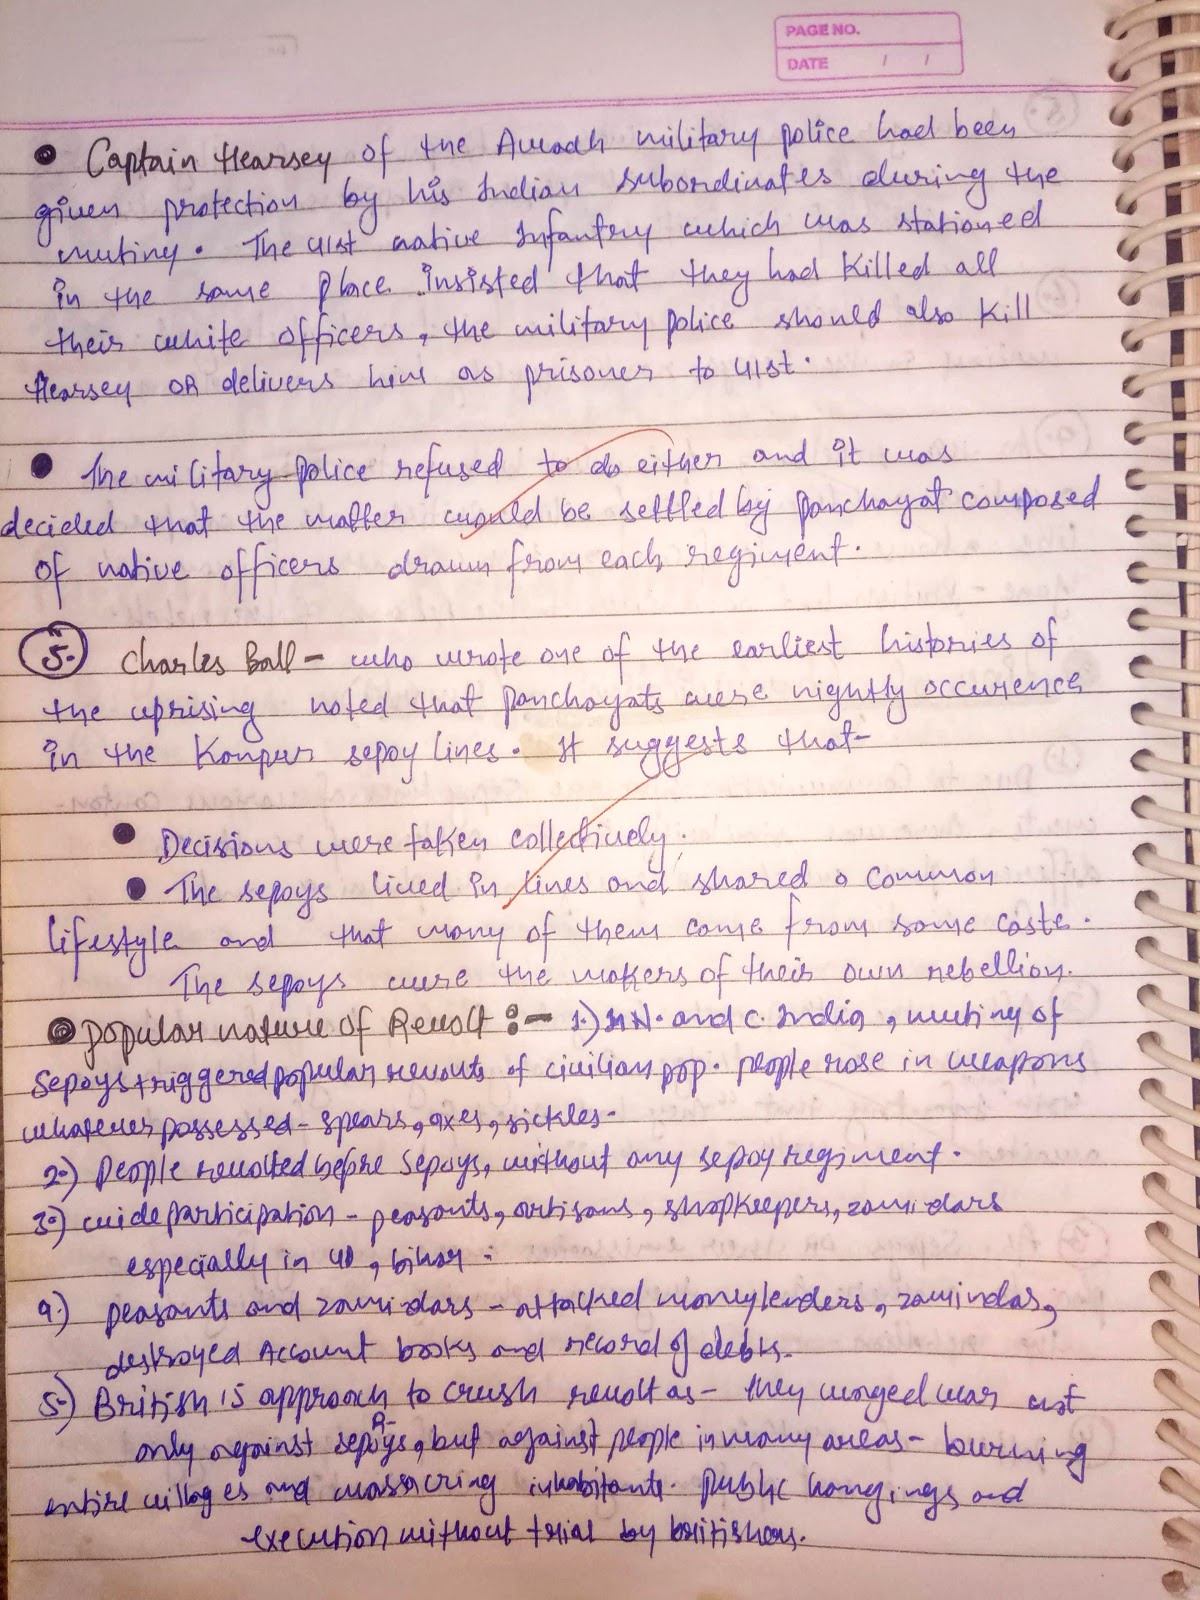 PAGE NO.
DATE / /
• Captain Hearsey of the Awadh military police had been
given protection by his Indian subordinates during the
mutiny. The 41st native Infantry which was stationed
in the same place insisted that they had killed all
their white officers, the military police should also kill
Hearsey OR delivers him as prisoner to 41st.
• The military police refused to do either and it was
decided that the matter would be settled by panchayat composed
of native officers drawn from each regiment.
5. Charles Ball - who wrote one of the earliest histories of
the uprising noted that panchayats were nightly occurence
in the Kanpur sepoy lines. It suggests that-
• Decisions were taken collectively.
• The sepoys lived in lines and shared a common
lifestyle and that many of them come from same caste.
The sepoys were the makers of their own rebellion.
• Popular nature of Revolt :- 1.) In N. and C. India, mutiny of
Sepoys triggered popular revolts of civilian pop. people rose in weapons
whatever possessed - spears, axes, sickles.
2.) People revolted before Sepoys, without any sepoy regiment.
3.) wide participation - peasants, artisans, shopkeepers, zamidars
especially in UP, bihar :
4.) peasants and zamidars - attacked moneylenders, zamindas,
destroyed Account books and record of debts.
5.) British's approach to crush revolt as - they waged war not
only against sepoys, but against people in many areas - burning
entire villages and massacring inhabitants. public hangings and
execution without trial by britishers.